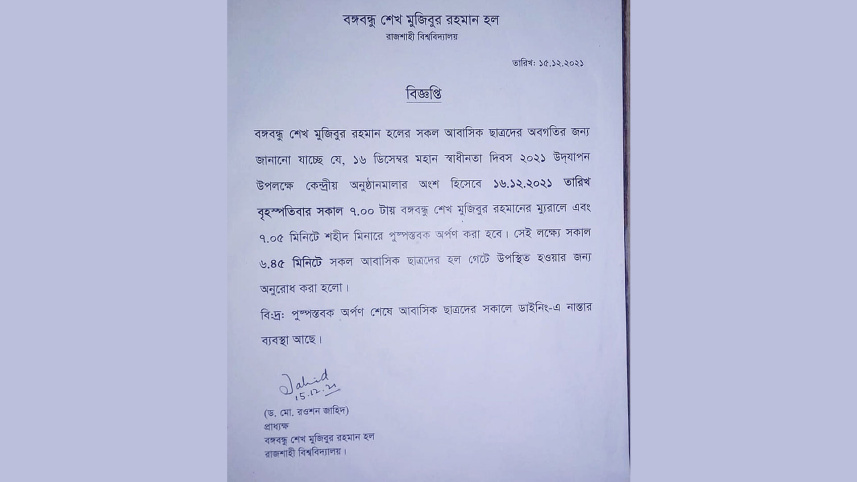 বঙ্গবন্ধু শেখ মুজিবুর রহমান হল
রাজশাহী বিশ্ববিদ্যালয়
তারিখ: ১৫.১২.২০২১
বিজ্ঞপ্তি
বঙ্গবন্ধু শেখ মুজিবুর রহমান হলের সকল আবাসিক ছাত্রদের অবগতির জন্য
জানানো যাচ্ছে যে, ১৬ ডিসেম্বর মহান স্বাধীনতা দিবস ২০২১ উদ্‌যাপন
উপলক্ষে কেন্দ্রীয় অনুষ্ঠানমালার অংশ হিসেবে ১৬.১২.২০২১ তারিখ
বৃহস্পতিবার সকাল ৭.০০ টায় বঙ্গবন্ধু শেখ মুজিবুর রহমানের ম্যুরালে এবং
৭.০৫ মিনিটে শহীদ মিনারে পুষ্পস্তবক অর্পণ করা হবে। সেই লক্ষ্যে সকাল
৬.৪৫ মিনিটে সকল আবাসিক ছাত্রদের হল গেটে উপস্থিত হওয়ার জন্য
অনুরোধ করা হলো।
বি:দ্র: পুষ্পস্তবক অর্পণ শেষে আবাসিক ছাত্রদের সকালে ডাইনিং-এ নাস্তার
ব্যবস্থা আছে।
Jahid
15.12.21
(ড. মো. রওশন জাহিদ)
প্রাধ্যক্ষ
বঙ্গবন্ধু শেখ মুজিবুর রহমান হল
রাজশাহী বিশ্ববিদ্যালয়।